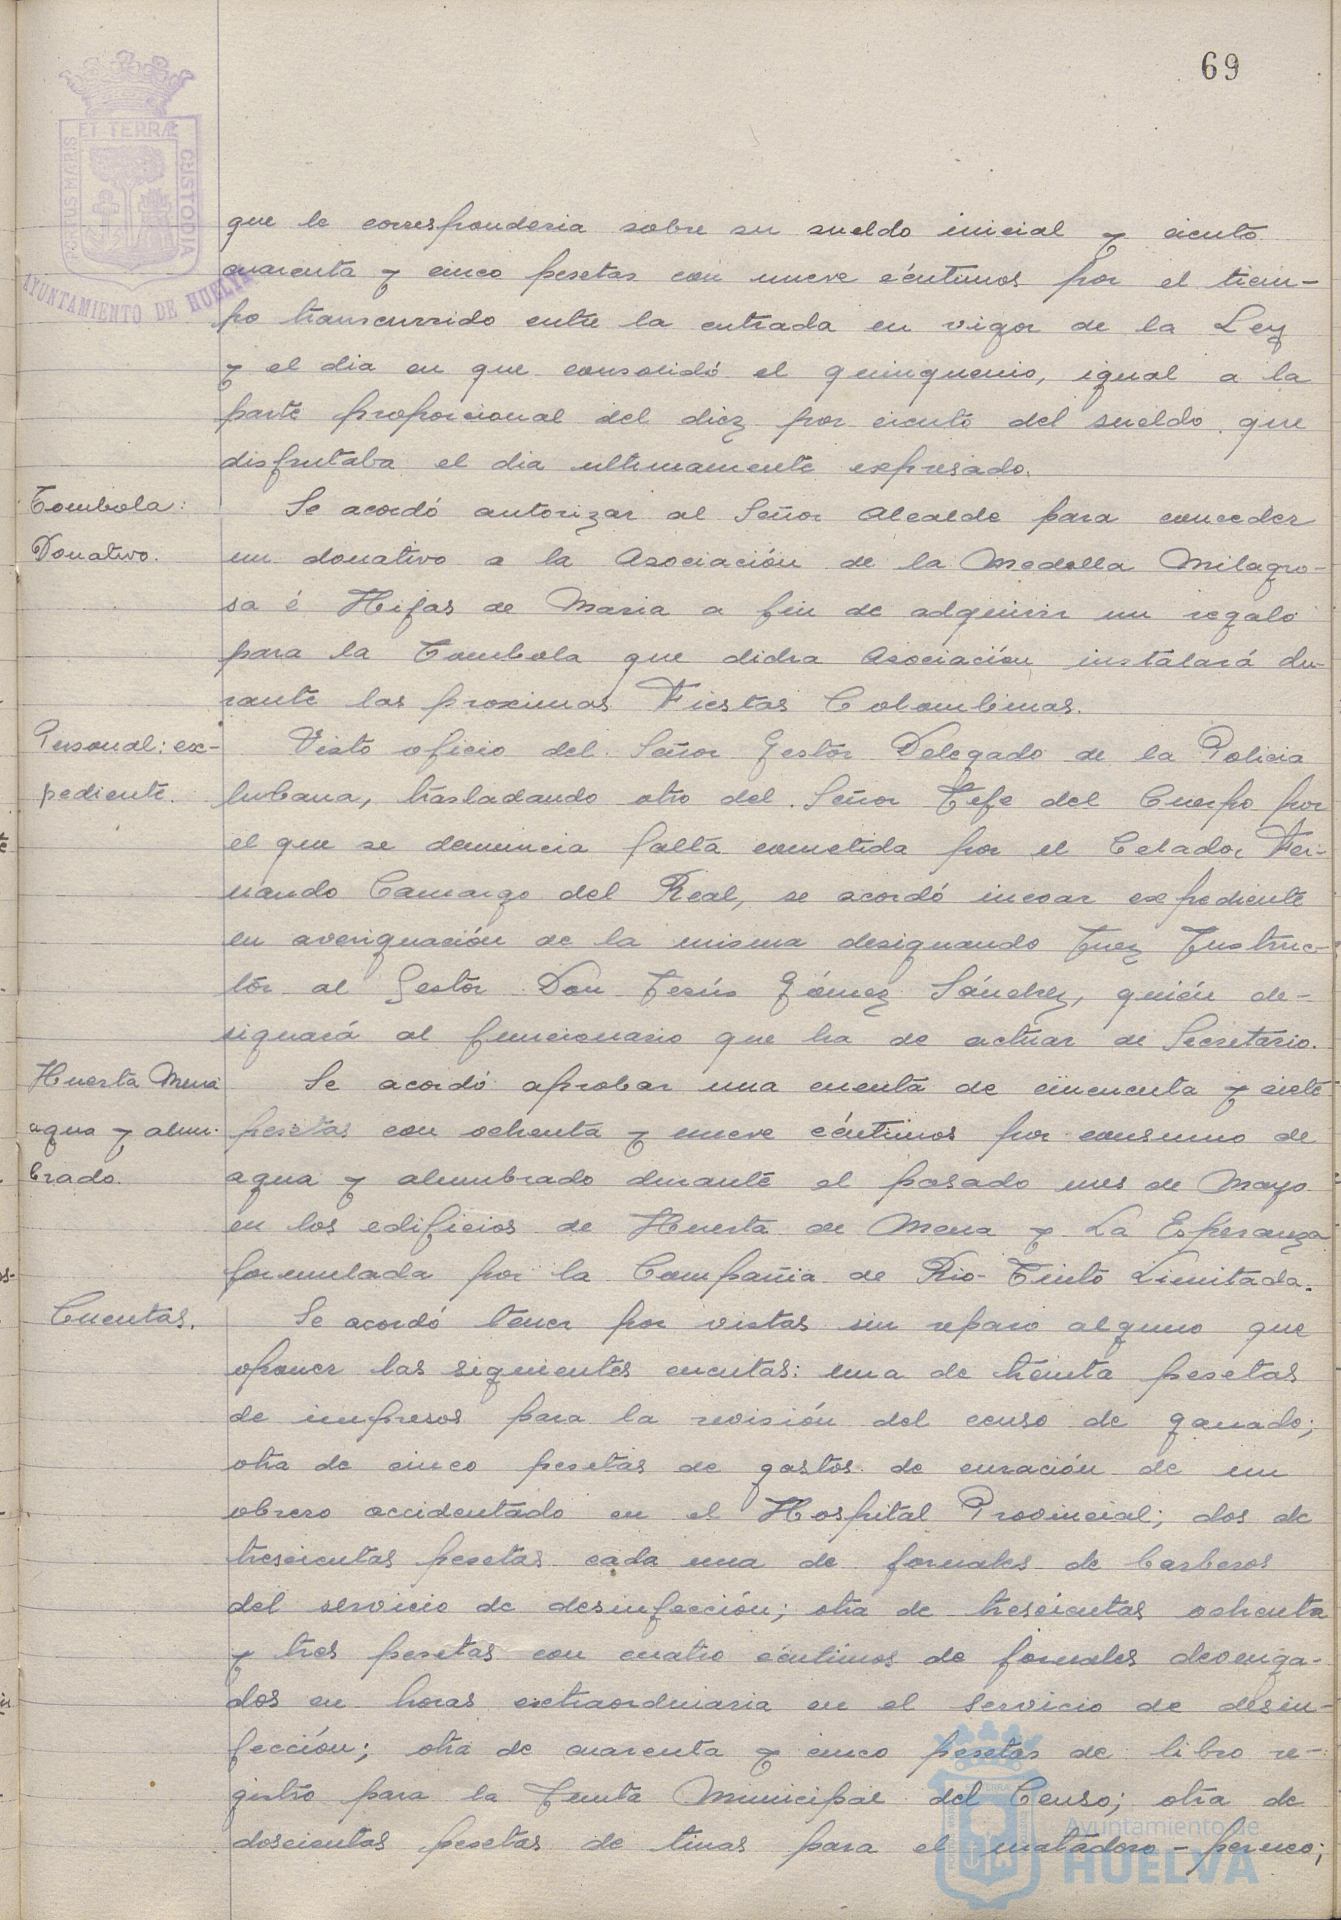 69
PORTUS MARIS ET TERRÆ CUSTODIA
AYUNTAMIENTO DE HUELVA
que le corresponderia sobre su sueldo inicial y ciento
cuarenta y cinco pesetas con nueve céntimos por el tiem-
po transcurrido entre la entrada en vigor de la Ley
y el dia en que consolidó el quinquenio, igual a la
parte proporcional del diez por ciento del sueldo que
disfrutaba el dia ultimamente expresado.
Tombola:
Donativo.
Se acordó autorizar al Señor Alcalde para conceder
un donativo a la Asociación de la Medalla Milagro-
sa é Hijas de Maria a fin de adquirir un regalo
para la Tombola que didha Asociación instalará du-
rante las proximas Fiestas Colombinas.
Personal: ex-
pediente.
Visto oficio del Señor Gestor Delegado de la Policia
Urbana, trasladando otro del Señor Jefe del Cuerpo por
el que se denuncia falta cometida por el Celador Fer-
nando Camargo del Real, se acordó incoar expediente
en averiguación de la misma designando Juez Instruc-
tor al Gestor Don Jesús Gómez Sánchez, quién de-
signará al funcionario que ha de actuar de Secretario.
Huerta Mena
agua y alum-
brado.
Se acordó aprobar una cuenta de cincuenta y siete
pesetas con ochenta y nueve céntimos por consumo de
agua y alumbrado durante el pasado mes de Mayo
en los edificios de Huerta de Mena y La Esperanza
formulada por la Compañia de Rio-Tinto Limitada.
Cuentas.
Se acordó tener por vistas sin reparo alguno que
oponer las siguientes cuentas: una de treinta pesetas
de impresos para la revisión del censo de ganado;
otra de cinco pesetas de gastos de curación de un
obrero accidentado en el Hospital Provincial; dos de
trescientas pesetas cada una de jornales de barberos
del servicio de desinfección; otra de trescientas ochenta
y tres pesetas con cuatro céntimos de jornales devenga-
dos en horas extraordinaria en el servicio de desin-
fección; otra de cuarenta y cinco pesetas de libro re-
gistro para la Junta Municipal del Censo; otra de
doscientas pesetas de tinas para el matadero-
Ayuntamiento de
HUELVA